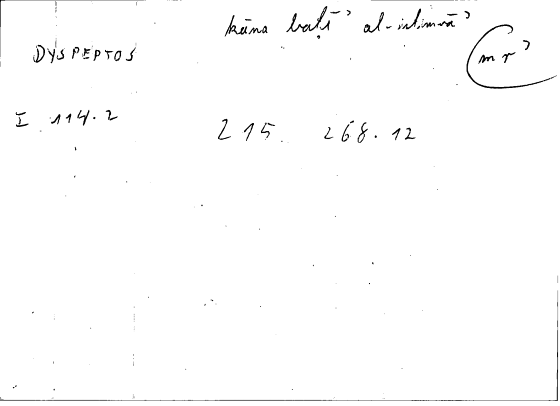 kāna baṭīʾ al-istimrāʾ
mrʾ
DYSPEPTOS
I 114.2
215. 268.12